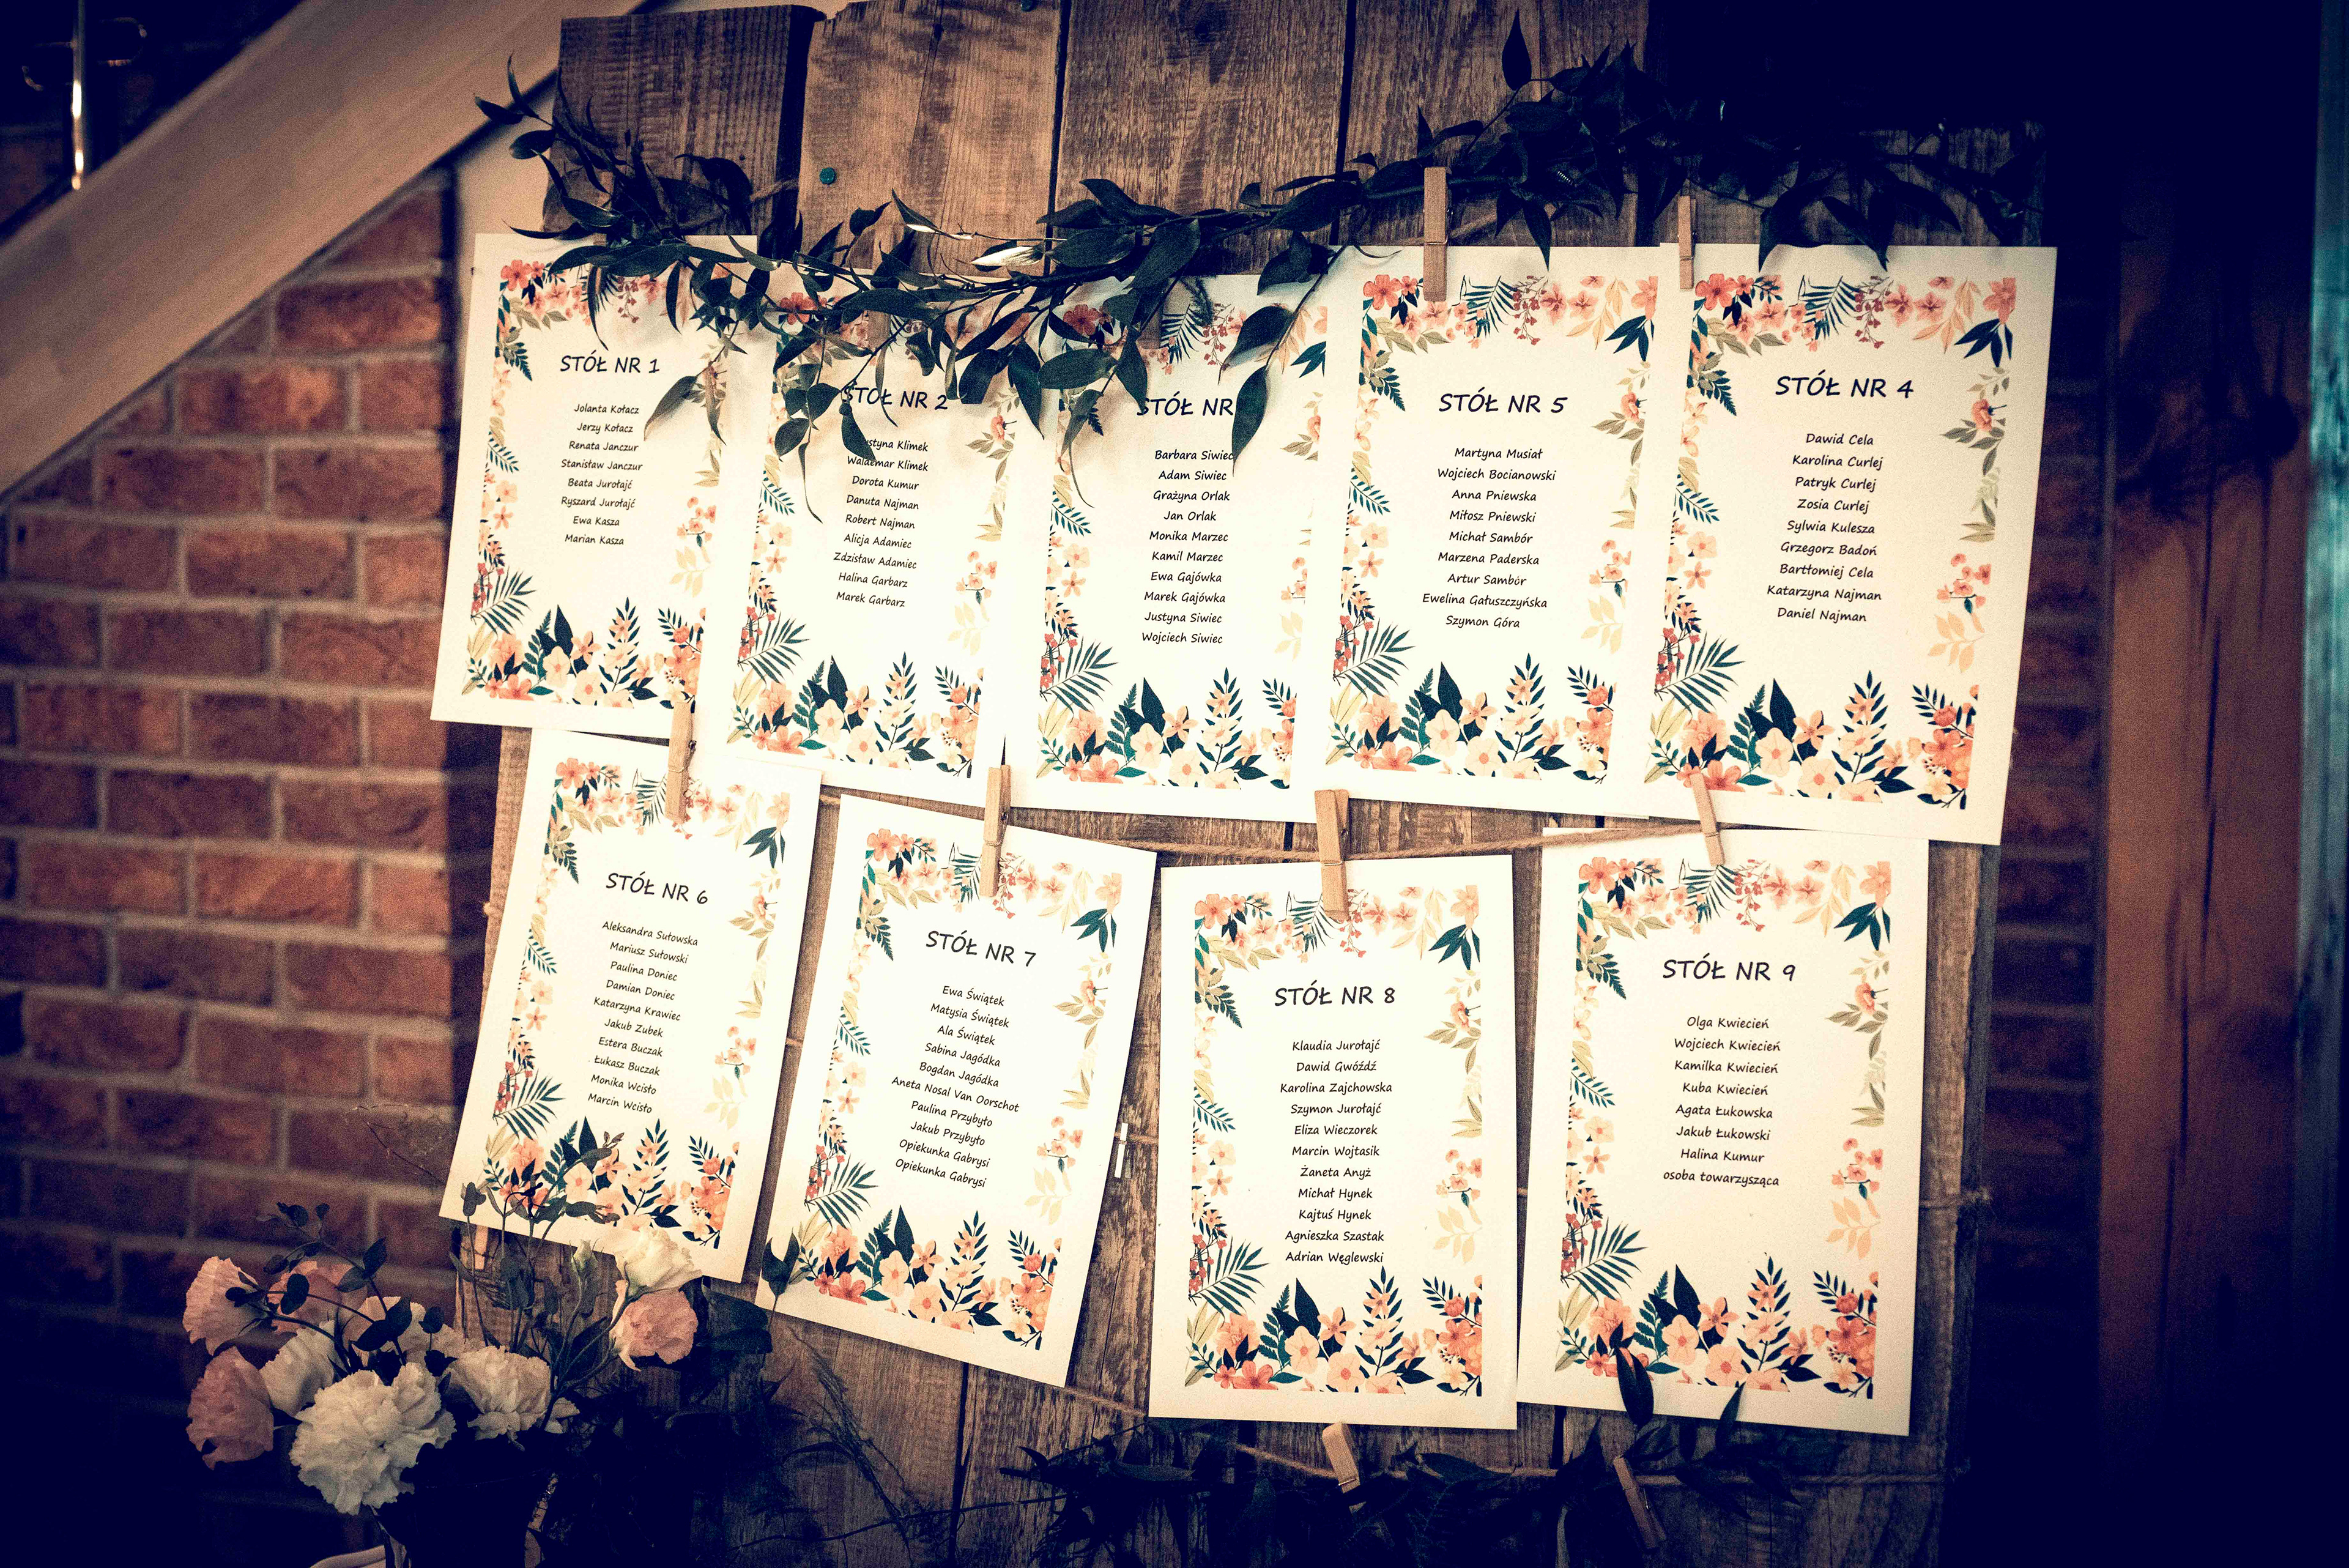 STÓŁ NR 1
Jolanta Kołacz
Jerzy Kołacz
Renata Janczur
Stanisław Janczur
Beata Jurołajć
Ryszard Jurołajć
Ewa Kasza
Marian Kasza
STÓŁ NR 2
Klimek
Waldemar Klimek
Dorota Kumur
Danuta Najman
Robert Najman
Alicja Adamiec
Zdzisław Adamiec
Halina Garbarz
Marek Garbarz
STÓŁ NR
Barbara Siwiec
Adam Siwiec
Grażyna Orlak
Jan Orlak
Monika Marzec
Kamil Marzec
Ewa Gajówka
Marek Gajówka
Justyna Siwiec
Wojciech Siwiec
STÓŁ NR 5
Martyna Musiał
Wojciech Bocianowski
Anna Pniewska
Miłosz Pniewski
Michał Sambór
Marzena Paderska
Artur Sambór
Ewelina Gałuszczyńska
Szymon Góra
STÓŁ NR 4
Dawid Cela
Karolina Curlej
Patryk Curlej
Zosia Curlej
Sylwia Kulesza
Grzegorz Badoń
Bartłomiej Cela
Katarzyna Najman
Daniel Najman
STÓŁ NR 6
Aleksandra Sułowska
Mariusz Sułowski
Paulina Doniec
Damian Doniec
Katarzyna Krawiec
Jakub Zubek
Estera Buczak
Łukasz Buczak
Monika Wcisło
Marcin Wcisło
STÓŁ NR 7
Ewa Świątek
Matysia Świątek
Ala Świątek
Sabina Jagódka
Bogdan Jagódka
Aneta Nosal Van Oorschot
Paulina Przybyło
Jakub Przybyło
Opiekunka Gabrysi
Opiekunka Gabrysi
STÓŁ NR 8
Klaudia Jurołajć
Dawid Gwóźdź
Karolina Zajchowska
Szymon Jurołajć
Eliza Wieczorek
Marcin Wojtasik
Żaneta Anyż
Michał Hynek
Kajtuś Hynek
Agnieszka Szastak
Adrian Węglewski
STÓŁ NR 9
Olga Kwiecień
Wojciech Kwiecień
Kamilka Kwiecień
Kuba Kwiecień
Agata Łukowska
Jakub Łukowski
Halina Kumur
osoba towarzysząca